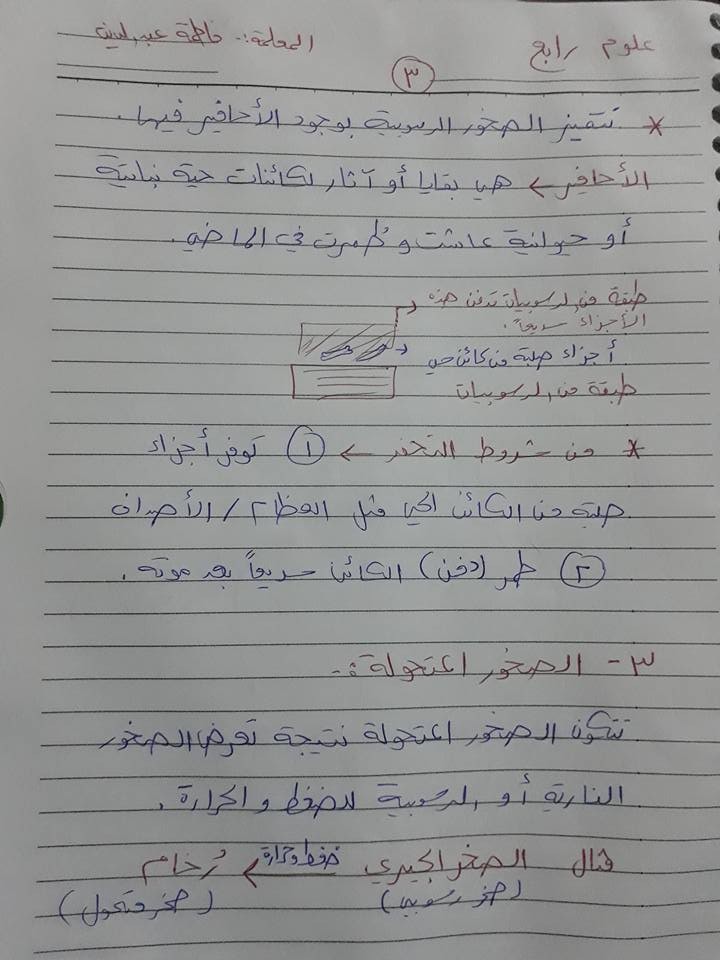 علوم رابع
المعلمة:. فاطمة عبد
٣
* تتميز الصخور الرسوبية بوجود الأحافير فيها.
الأحافير ← هي بقايا أو آثار لكائنات حية نباتية
أو حيوانية عاشت وطُمرت في الماضي.
طبقة من الرسوبيات تدفن هذه
الأجزاء سريعاً.
أجزاء صلبة من كائن حي
طبقة من الرسوبيات
* من شروط التحفر ← ① توفر أجزاء
صلبة من الكائن الحي مثل العظام / الأصداف
② طمر (دفن) الكائن سريعاً بعد موته.
٣- الصخور المتحولة :-
تتكون الصخور المتحولة نتيجة تعرض الصخور
النارية أو الرسوبية للضغط والحرارة.
مثال الصخر الجيري ← ضغط وحرارة رُخام
(صخر رسوبي) (صخر متحول)